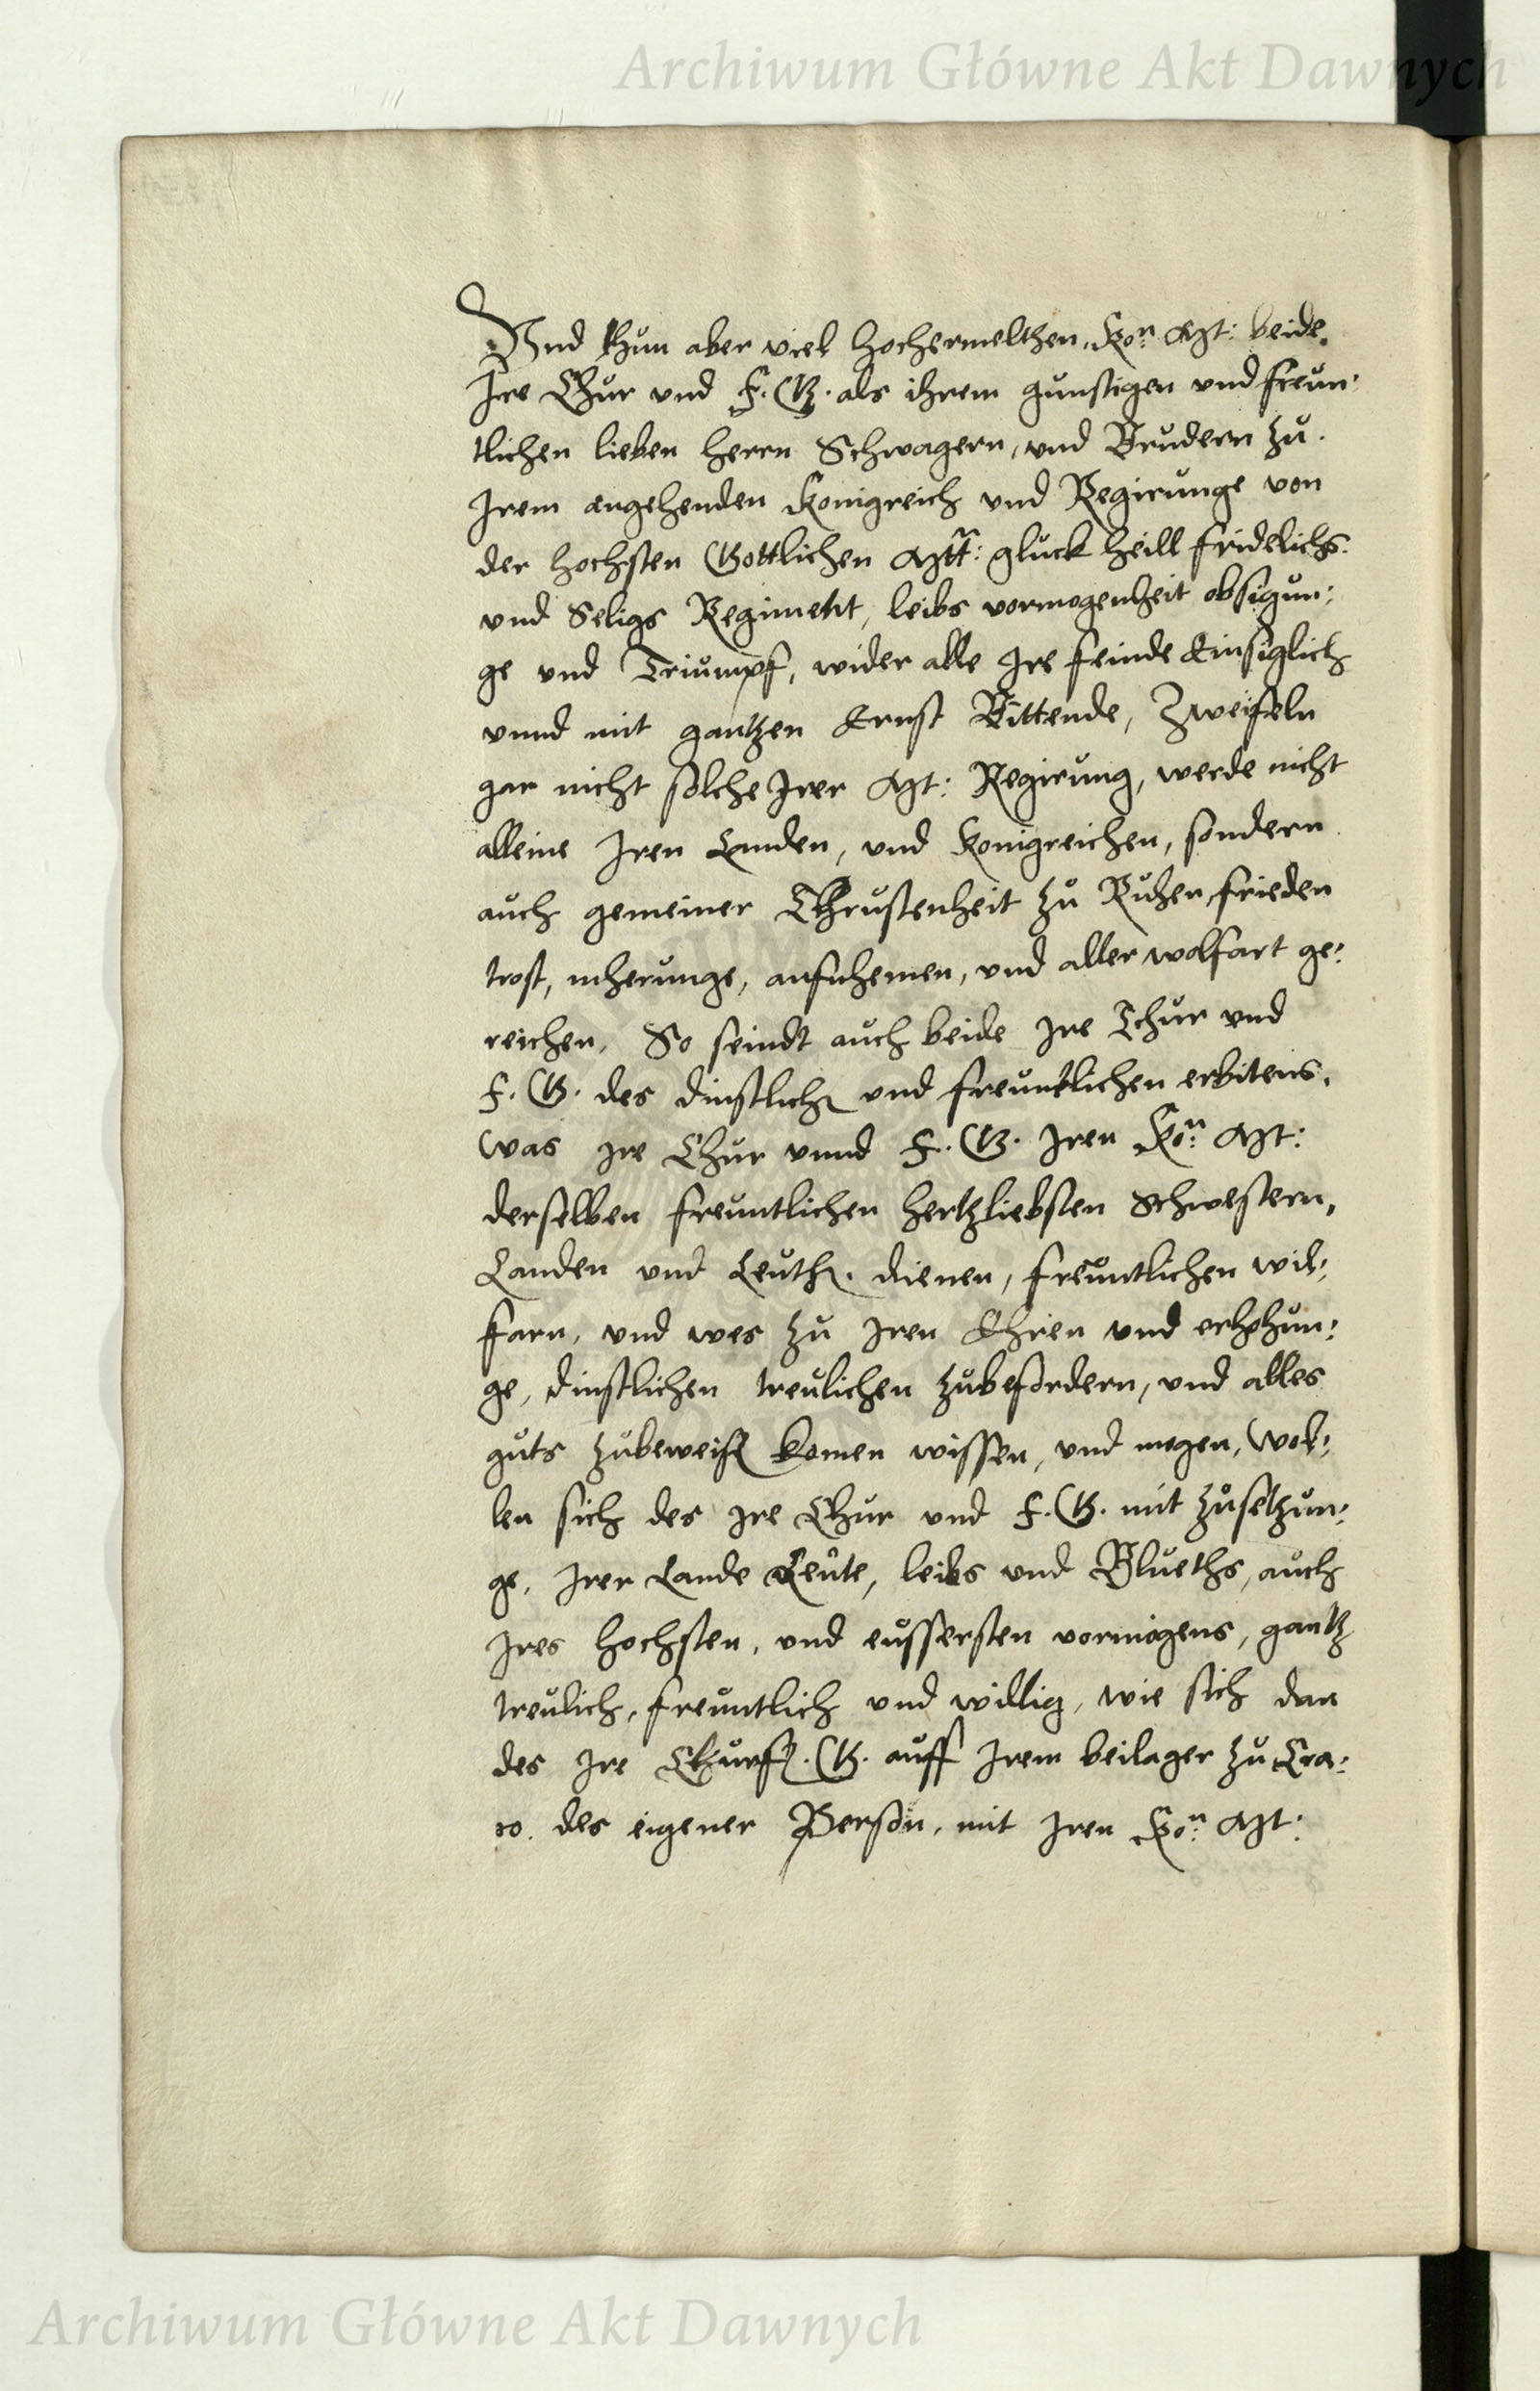 Archiwum Główne Akt Dawnych
Vnd thun aber viel hochermelthen, Kon: Mt: beide,
Ire Chur vnd F. G. als ihrem gunstigen vnd freun:
tlichen lieben herrn Schwagern, vnd Brudern zu.
Irem angehenden Konigreich vnd Regirunge von
der hochsten Gottlichen Mtt: gluck heill fridelichs.
vnd Seligs Regiment, leibs vormogenheit obsigun:
ge vnd Triumpf, wider alle Ire feinde Einsiglich
vnnd mit gantzen Ernst Bittende, Zweifeln
gar nicht solche Irer Mt: Regirung, werde nicht
alleine Iren Landen, vnd Konigreichen, sondern
auch gemeiner Chrustenheit zu Ruhen frieden
trost, mherunge, aufnhemen, vnd aller wolfart ge:
reichen, So seindt auch beide Ire Tchur vnd
F. G. des dinstlich vnd freuntlichen erbitens,
Was Ire Chur vnnd F. G. Iren Kon: Mt:
derselben freuntlichen hertzliebsten Schwestern,
Landen vnd Leuth. dienen, freuntlichen wil:
farn, vnd wes zu Iren Ehren vnd erhohun:
ge, dinstlichen treulichen zubefordern, vnd alles
guts zubeweisen komen wissen, vnd mogen, Wol:
len sich des Ire Chur vnd F. G. mit zusetzun:
ge, Irer Lande Leute, leibs vnd Blueths, auch
Ires hochsten, vnd eussersten vormogens, gantz
treulich, freuntlich vnd willig, wie sich dan
des Ire Churf. G. auff Irem beilager zu Cra:
co. des eigener Person, mit Iren Kon: Mt:
Archiwum Główne Akt Dawnych